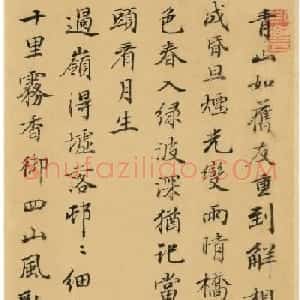 青山如舊友重到解相
成昏旦煙光變雨晴橋
色春入緑波深猶記當
頭看月生
過嶺得墟落邨〻細
十里霧香御四山風
shufaziliao.com